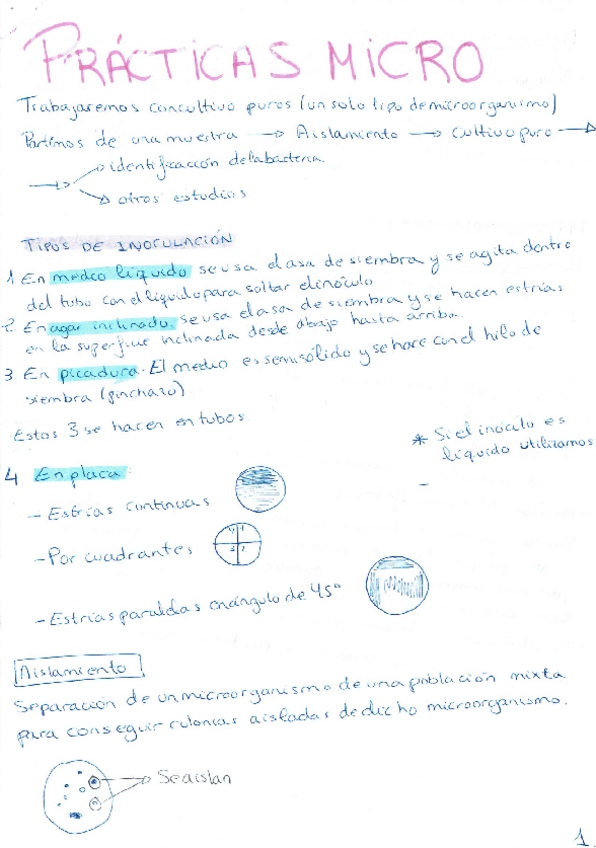 PRÁCTICAS MICRO
Trabajaremos con cultivo puros (un solo tipo de microorganismo)
Partimos de una muestra → Aislamiento → cultivo puro →
→ identificación de la bacteria
→ otros estudios
TIPOS DE INOCULACIÓN
1. En medio líquido se usa el asa de siembra y se agita dentro
del tubo con el líquido para soltar el inóculo
2. En agar inclinado. se usa el asa de siembra y se hacen estrías
en la superficie inclinada desde abajo hasta arriba.
3 En picadura. El medio es semisólido y se hace con el hilo de
siembra (pinchazo)
Estos 3 se hacen en tubos
* Si el inóculo es
líquido utilizamos
-
4 En placa:
- Estrías continuas
- Por cuadrantes
4 1
3 2
- Estrías paralelas en ángulo de 45°
Aislamiento
Separación de un microorganismo de una población mixta
para conseguir colonias aisladas de dicho microorganismo.
Se aislan
1